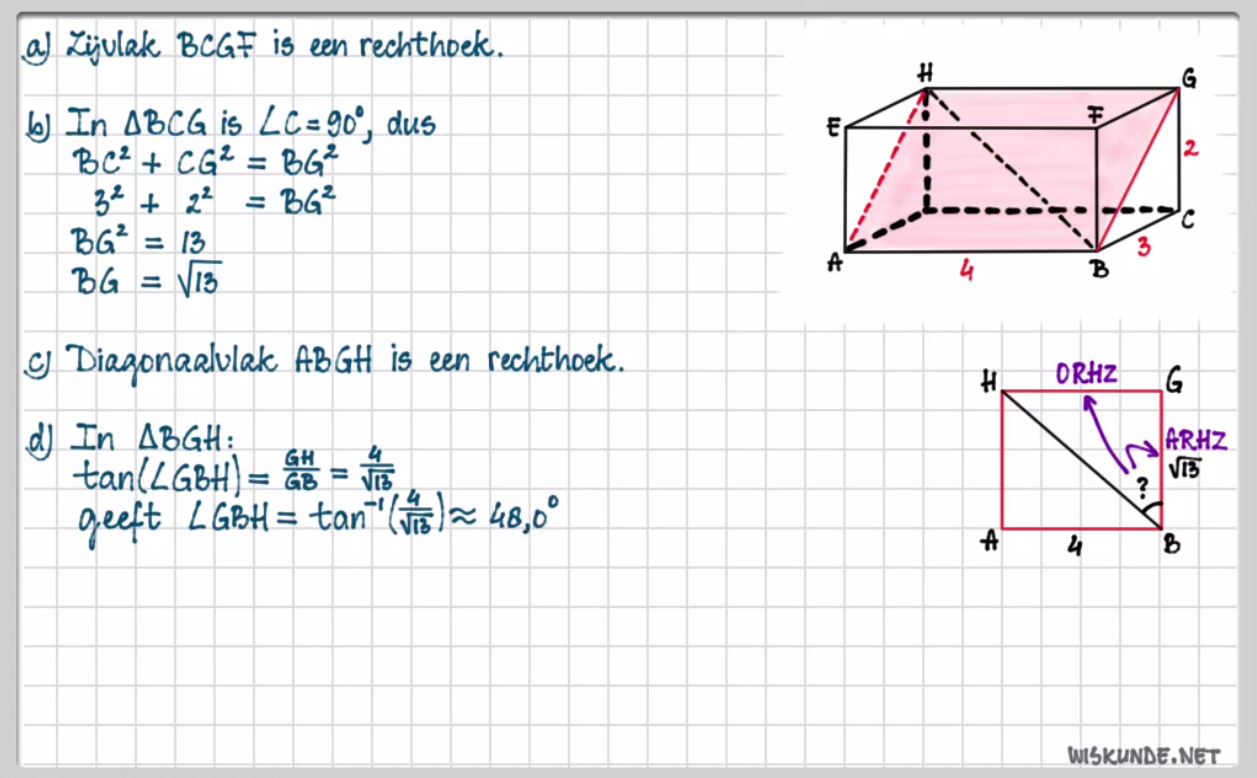 a) Zijvlak BCGF is een rechthoek.
b) In ΔBCG is ∠C = 90°, dus
BC² + CG² = BG²
3² + 2² = BG²
BG² = 13
BG = √13
c) Diagonaalvlak ABGH is een rechthoek.
d) In ΔBGH:
tan(∠GBH) = GH/GB = 4/√13
geeft ∠GBH = tan⁻¹(4/√13) ≈ 48,0°
H
G
E
F
2
C
A
B
3
4
H
ORHZ
G
ARHZ
√13
?
A
4
B
WISKUNDE.NET